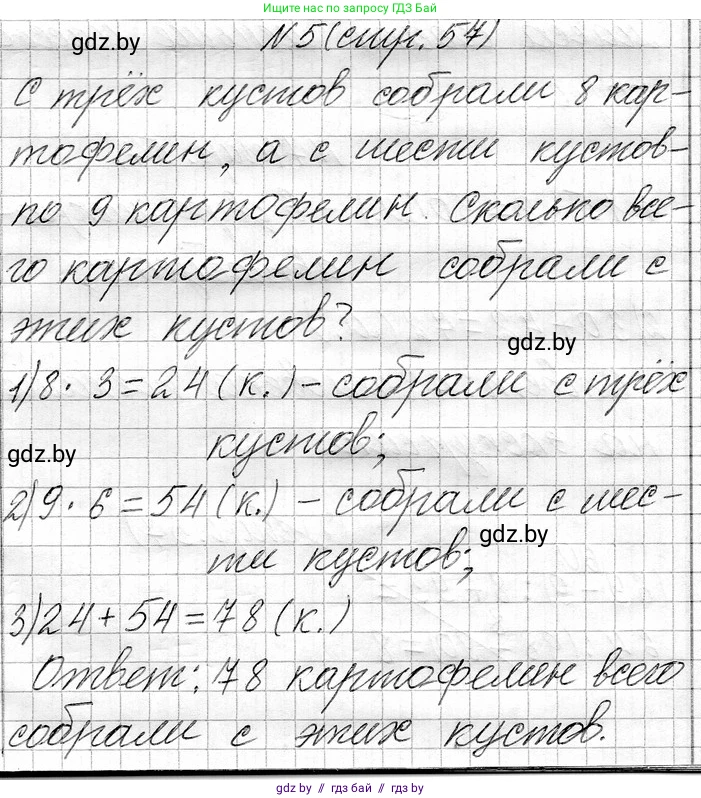 Ищите нас по запросу ГДЗ Бай
gdz.by
N 5 (стр. 57)
С трёх кустов собрали 8 кар-
тофелин, а с шести кустов-
по 9 картофелин. Сколько все-
го картофелин собрали с
этих кустов?
gdz.by
1) 8 · 3 = 24 (к.) - собрали с трёх
кустов;
gdz.by
2) 9 · 6 = 54 (к.) - собрали с шес-
gdz.by
ти кустов;
3) 24 + 54 = 78 (к.)
Ответ: 78 картофелин всего
собрали с этих кустов.
gdz.by // гдз бай // gdz.by